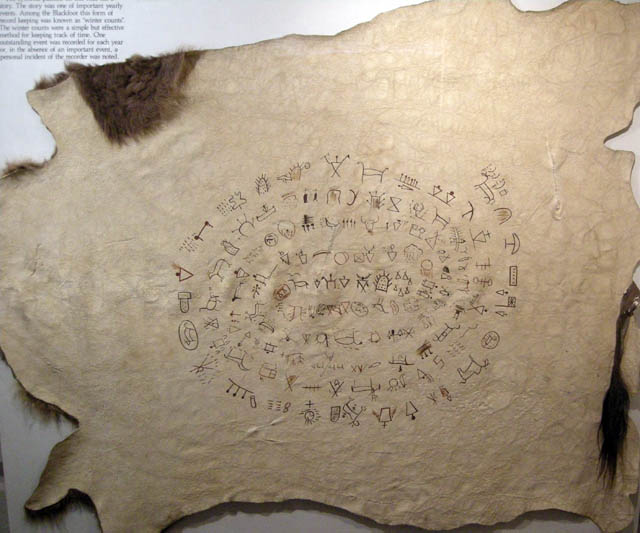 story. The story was one of important yearly
events. Among the Blackfoot this form of
record keeping was known as "winter counts".
The winter counts were a simple but effective
method for keeping track of time. One
outstanding event was recorded for each year
or, in the absence of an important event, a
personal incident of the recorder was noted.